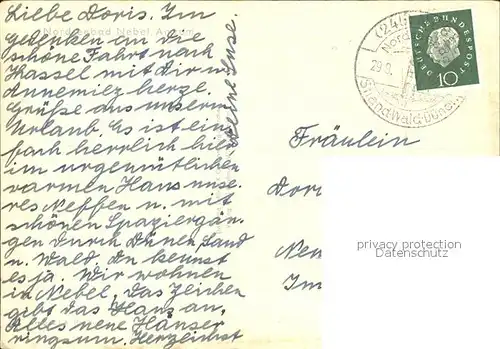 Liebe Doris. Im
Gedenken an die
schöne Fahrt nach
Kassel mit dir u.
Annemie herze.
Grüße aus unserm
Urlaub. Es ist ein-
fach herrlich hier
im urgemütlichen
warmen Haus unse-
res Neffen u. mit
schönen Spaziergän-
gen durch Dünen, Sand
u. Wald. Du kennst
es ja. Wir wohnen
in Nebel, das Zeichen
gibt das Haus an.
Alles neue Häuser
ringsum. Herzlichst
Nordseebad Nebel Amrum
(24b)
Nord
29.9.
Strand Wald Dünen
DEUTSCHE BUNDESPOST
10
Fräulein
Dor
Im
privacy protection
Datenschutz